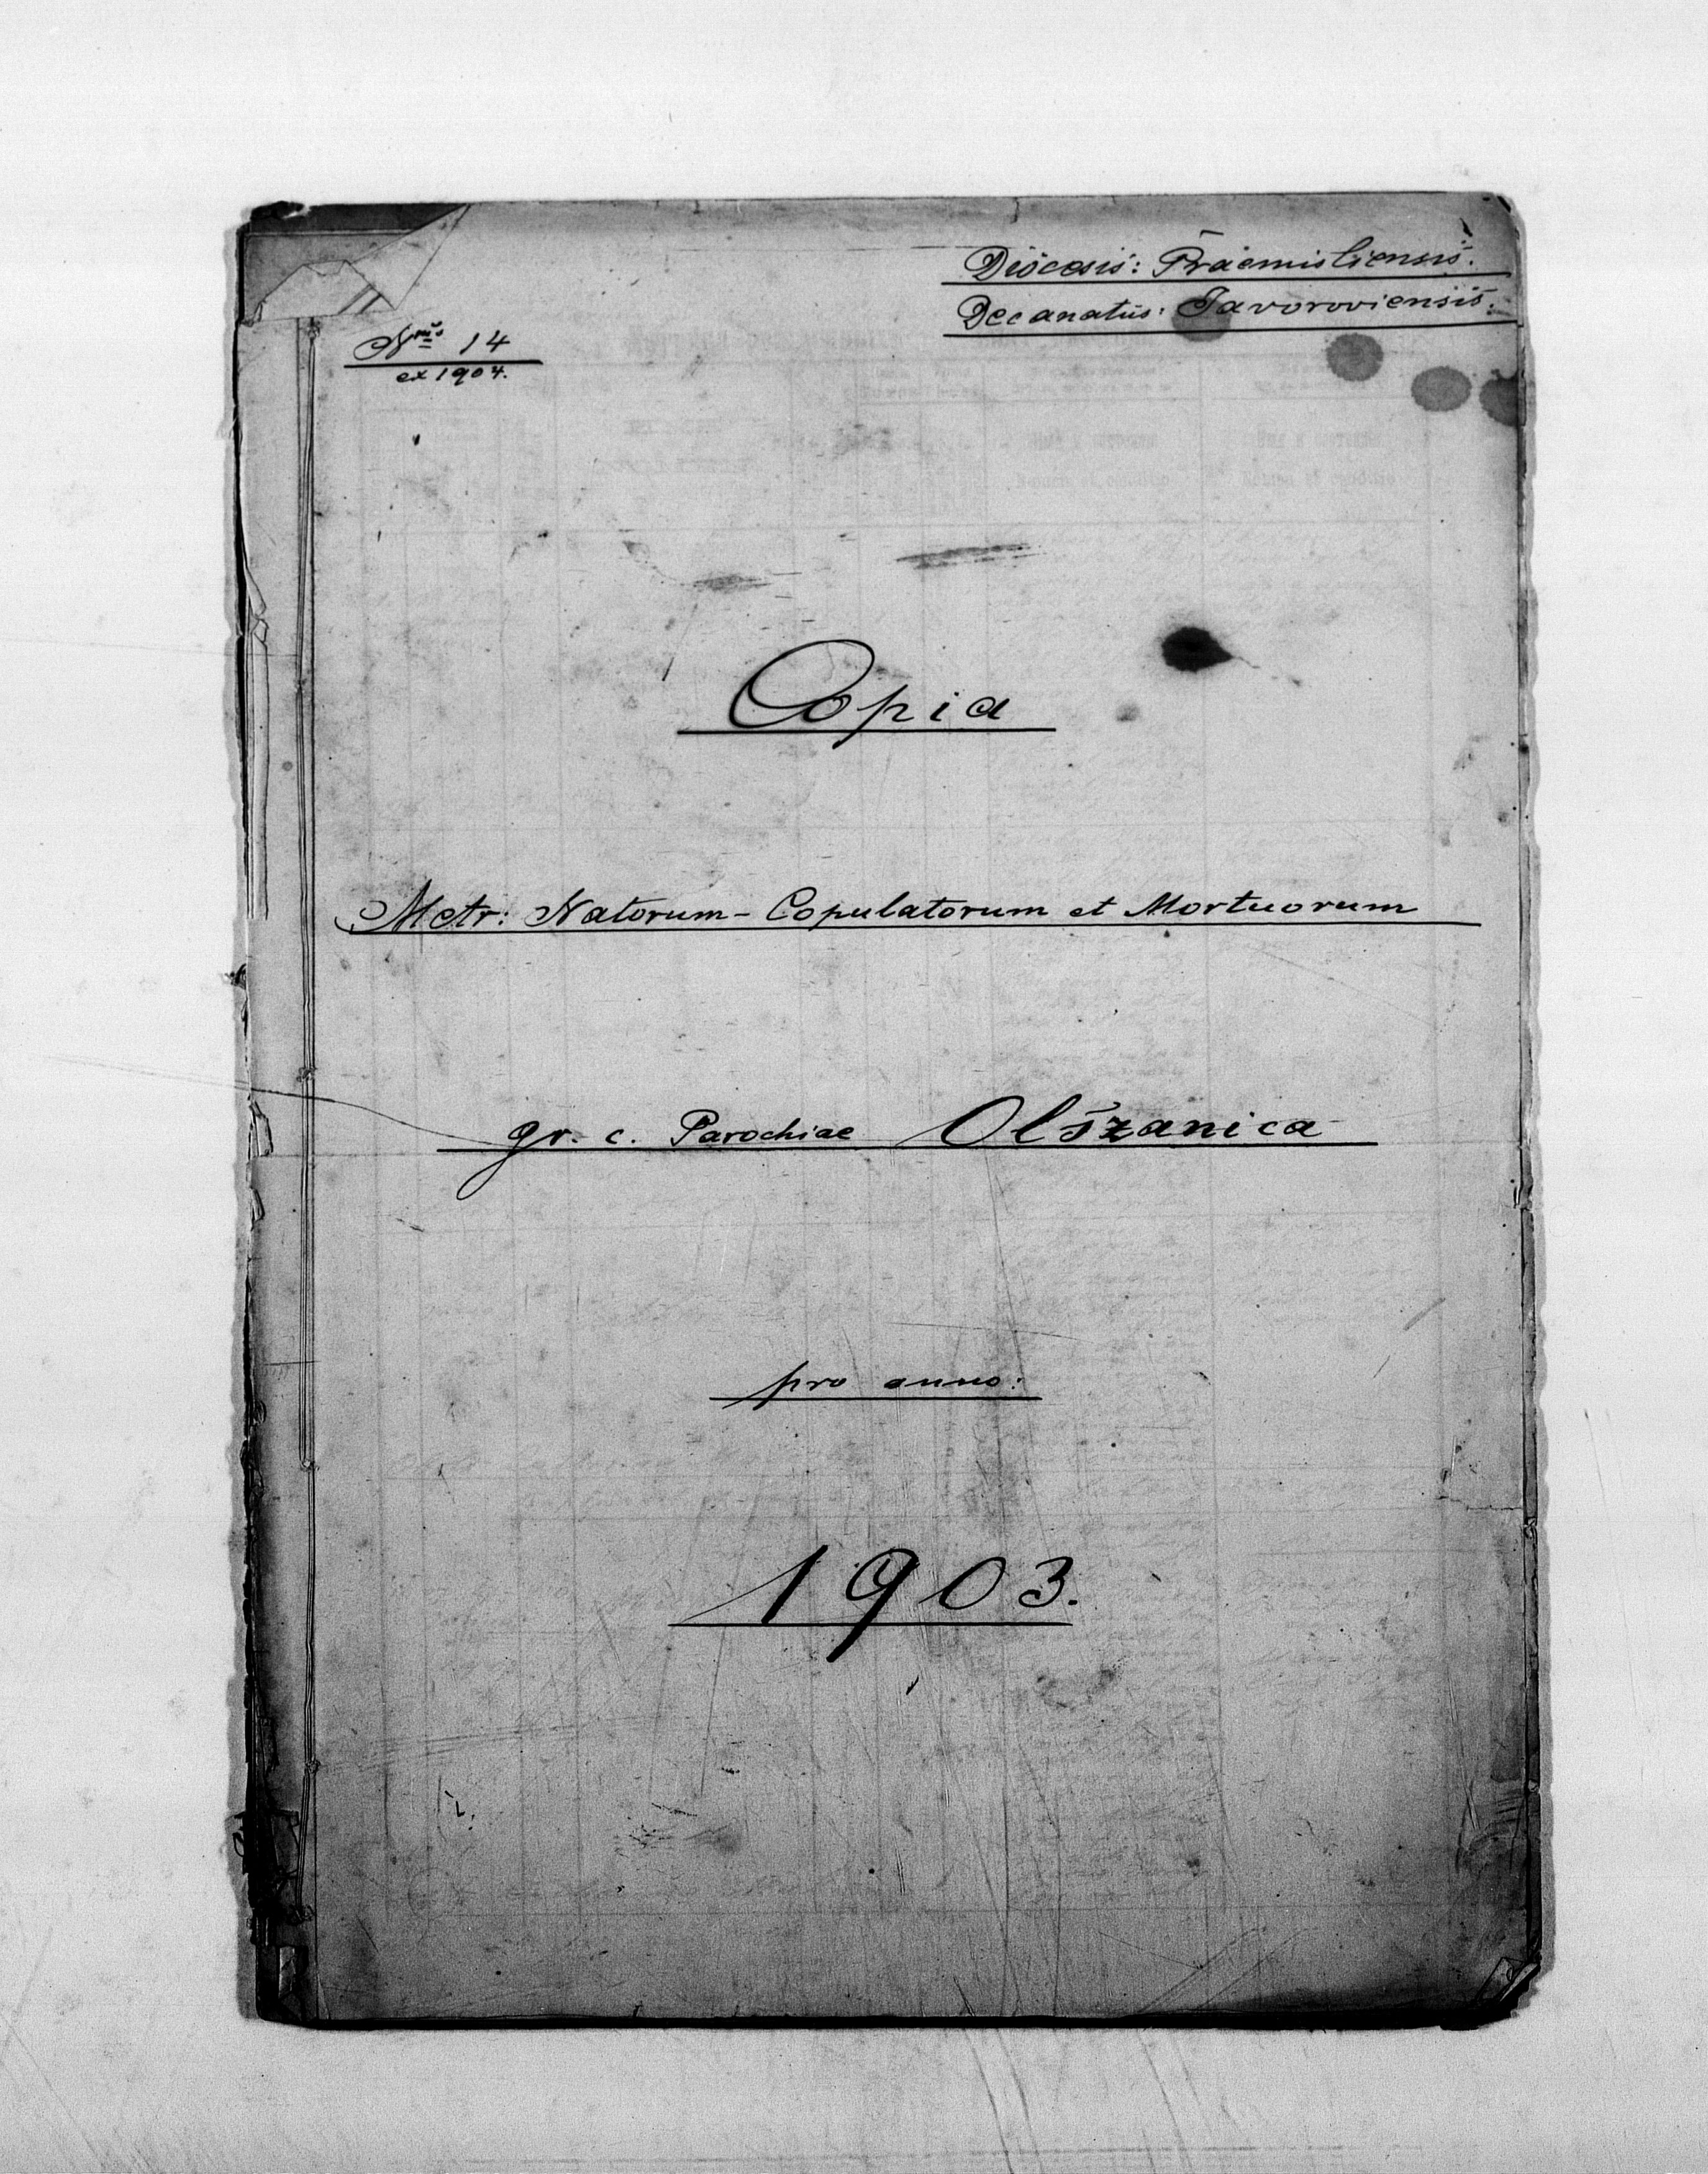 Diöcesis: Praemisliensis.
Decanatus: Javoroviensis.
Nrus 14
ex 1904.
Copia
Metr: Natorum - Copulatorum et Mortuorum
gr. c. Parochiae Olszanica
pro anno:
1903.